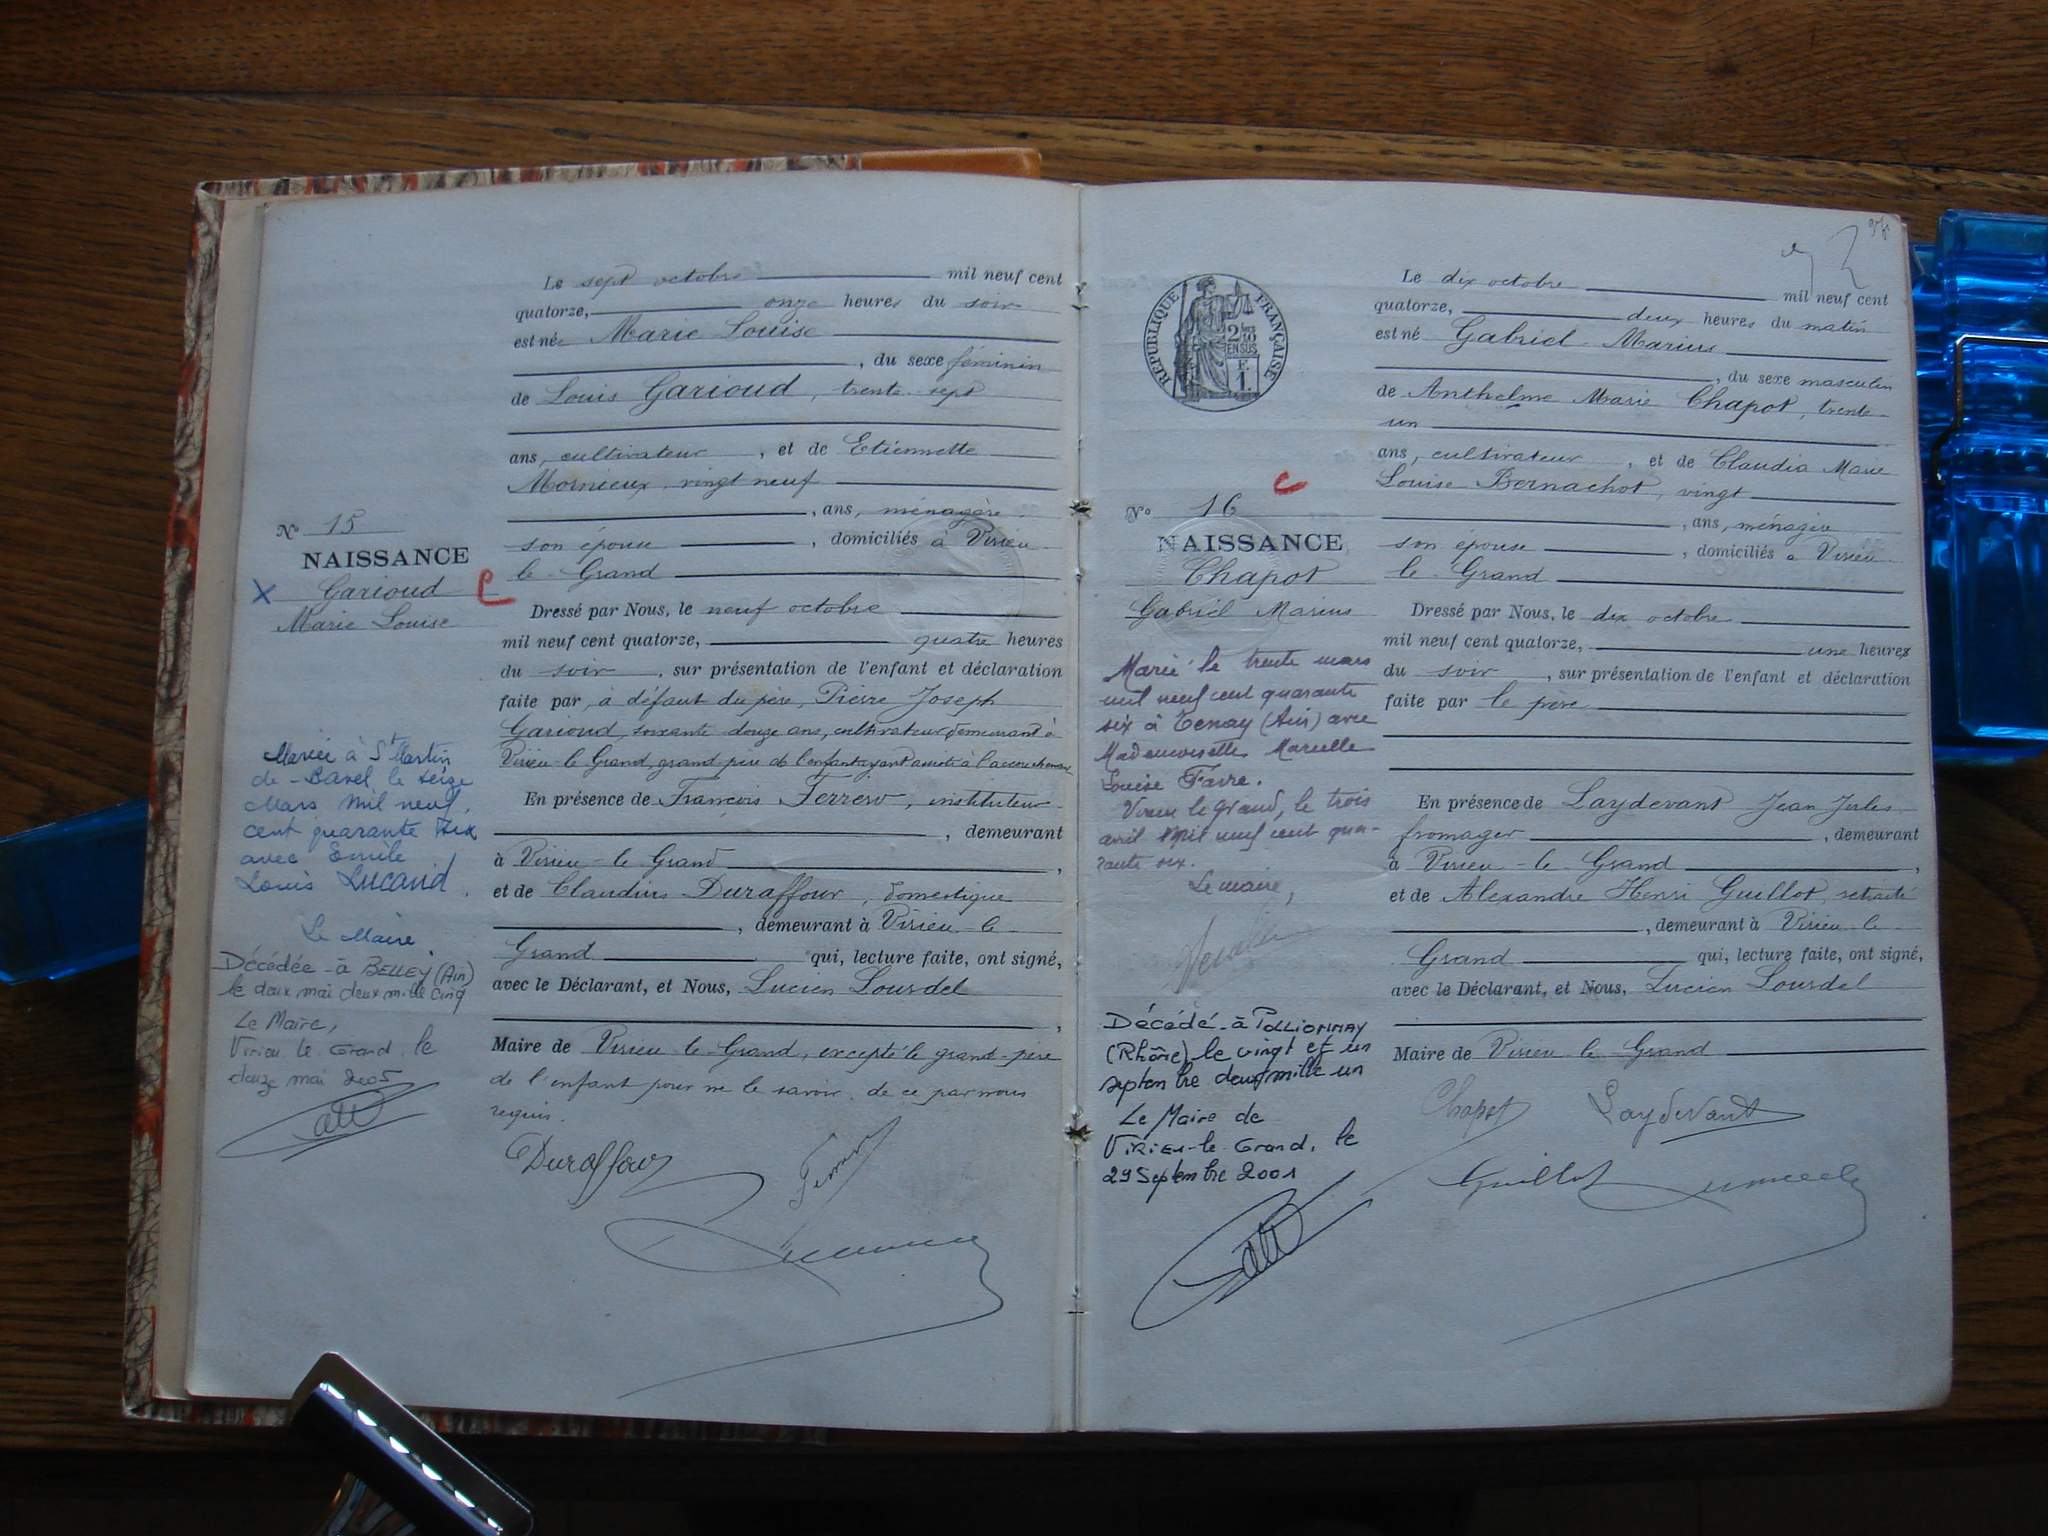 Le sept octobre mil neuf cent
quatorze, onze heures du soir
est née Marie Louise
, du sexe féminin
de Louis Garioud, trente-sept
ans, cultivateur, et de Etiennette
Mornieux, vingt neuf
, ans, ménagère
son épouse, domiciliés à Virieu
le-Grand
Dressé par Nous, le neuf octobre
mil neuf cent quatorze, quatre heures
du soir, sur présentation de l'enfant et déclaration
faite par, à défaut du père, Pierre Joseph
Garioud, soixante douze ans, cultivateur demeurant à
Virieu-le Grand, grand-père de l'enfant ayant assisté à l'accouchement
En présence de François Ferrero, instituteur
, demeurant
à Virieu-le Grand,
et de Claudius Duraffour, domestique
, demeurant à Virieu-le-
Grand qui, lecture faite, ont signé,
avec le Déclarant, et Nous, Lucien Lourdel
,
Maire de Virieu-le-Grand, excepté le grand-père
de l'enfant pour ne le savoir, de ce par nous
requis.
Duraffour
N° 15
NAISSANCE
X Garioud
Marie Louise
Mariée à St Martin
de-Bavel le seize
Mars mil neuf
cent quarante six
avec Emile
Louis Lucand.
Le Maire
Décédée à BELLEY (Ain)
le deux mai deux mille cinq
Le Maire,
Virieu-le-Grand, le
douze mai 2005
Le dix octobre mil neuf cent
quatorze, deux heures du matin
est né Gabriel-Marius
, du sexe masculin
de Anthelme Marie Chapot, trente-
un
ans, cultivateur, et de Claudia Marie
Louise Bernachot, vingt
, ans, ménagère
son épouse, domiciliés à Virieu
le-Grand
Dressé par Nous, le dix octobre
mil neuf cent quatorze, une heures
du soir, sur présentation de l'enfant et déclaration
faite par le père
En présence de Laydevant Jean Jules
fromager, demeurant
à Virieu-le-Grand,
et de Alexandre Henri Guillot, retraité
, demeurant à Virieu-le-
Grand qui, lecture faite, ont signé,
avec le Déclarant, et Nous, Lucien Lourdel
Maire de Virieu-le-Grand
Chapot Laydevant
Guillot
RÉPUBLIQUE FRANÇAISE
2/10
EN SUS
F.
1
N° 16
NAISSANCE
Chapot
Gabriel Marius
Marié le trente mars
mil neuf cent quarante
six à Tenay (Ain) avec
Mademoiselle Marcelle
Louise Favre.
Virieu le Grand, le trois
avril mil neuf cent qua-
rante six.
Le maire,
Décédé à POLLIONNAY
(Rhône) le vingt et un
septembre deux mille un
Le Maire de
VIRIEU-le-Grand, le
29 Septembre 2001